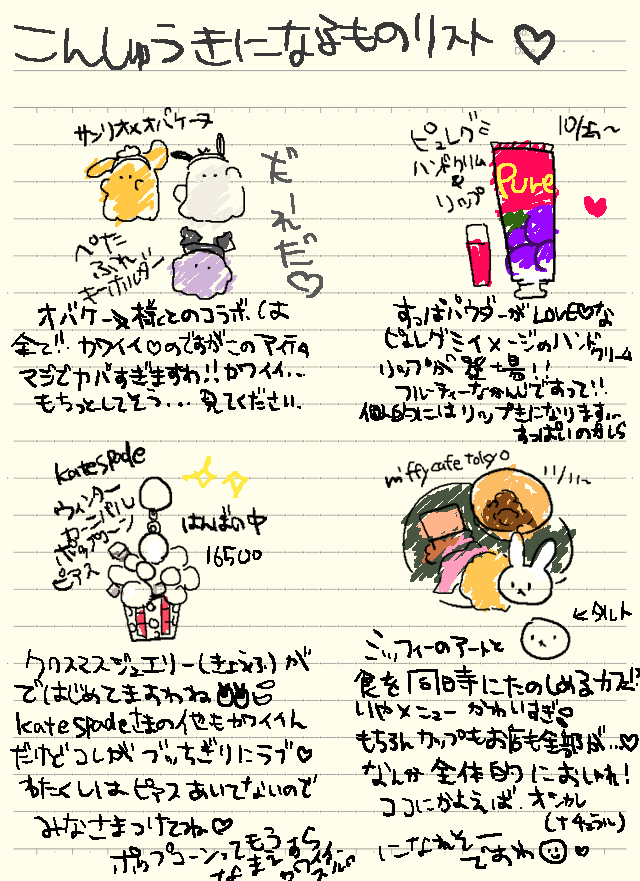 こんしゅうきになるものリスト♡
サンリオ×オバケーヌ
だーれだ♡
ぺた
ふれ
キーホルダー
オバケーヌ様とのコラボ、は
全て!!カワイイ♡のですがこのアイテム
マジでカバすぎますわ!!カワイイ…
もちっとしてそう…見てください
ピュレグミ
ハンドクリーム
&
リップ
10/25〜
Pure
すっぱパウダーがLOVE♡な
ピュレグミイメージのハンド
クリーム
リップが登場!!
フルーティーなかんじですって!!
個人的にはリップきになります…
すっぱいのかしら
kate spade
ウィンター
カーニバル
ポップコーン
ピアス
はんぱの中
16500
クリスマスジュエリー(きょうふ)が
ではじめてきますわね
kate spadeさまの他もカワイイん
だけどコレがブッちぎりにラブ♡
わたくしはピアスあいてないので
みなさまつけてね♡
ポップコーンってもうすら
なまえ
カワイイ
miffy cafe tokyo
11/11〜
←タルト
ミッフィーのアートと
食を同時にたのしめるカフェ!?
いやメニューかわいすぎ
もちろんカップもお店も全部が…♡
なんか全体的におしゃれ!
ココにかよえば、オシャレ
(ナチュラル)
になれそー
ですわ